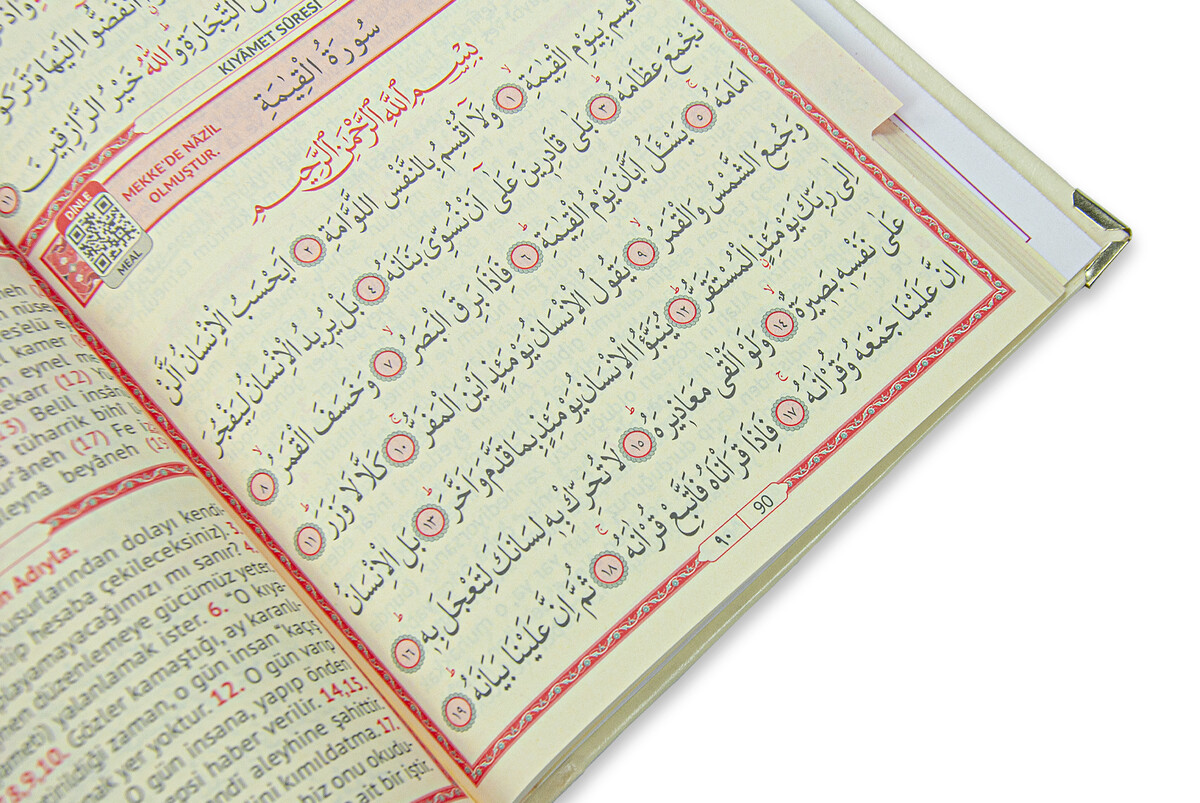 انْفَضُّٓوا اِلَيْهَا وَتَرَكُو
التِّجَارَةِ وَاللّٰهُ خَيْرُ الرَّازِق۪ينَ ١١
KIYÂMET SÛRESİ
سُورَةُ الْقِيٰمَةِ
MEKKE'DE NÂZİL
OLMUŞTUR.
DİNLE
MEAL
بِسْمِ اللّٰهِ الرَّحْمٰنِ الرَّح۪يمِ
اُقْسِمُ بِيَوْمِ الْقِيٰمَةِۙ ١ وَلَٓا اُقْسِمُ بِالنَّفْسِ اللَّوَّامَةِۜ ٢ اَيَحْسَبُ الْاِنْسَانُ اَلَّنْ
نَجْمَعَ عِظَامَهُۜ ٣ بَلٰى قَادِر۪ينَ عَلٰٓى اَنْ نُسَوِّيَ بَنَانَهُ ٤ بَلْ يُر۪يدُ الْاِنْسَانُ لِيَفْجُرَ
اَمَامَهُۚ ٥ يَسْـَٔلُ اَيَّانَ يَوْمُ الْقِيٰمَةِۜ ٦ فَاِذَا بَرِقَ الْبَصَرُۙ ٧ وَخَسَفَ الْقَمَرُۙ ٨
وَجُمِعَ الشَّمْسُ وَالْقَمَرُۙ ٩ يَقُولُ الْاِنْسَانُ يَوْمَئِذٍ اَيْنَ الْمَفَرُّۚ ١٠ كَلَّا لَا وَزَرَۜ ١١
اِلٰى رَبِّكَ يَوْمَئِذٍۨ الْمُسْتَقَرُّۜ ١٢ يُنَبَّؤُا الْاِنْسَانُ يَوْمَئِذٍ بِمَا قَدَّمَ وَاَخَّرَۜ ١٣ بَلِ الْاِنْسَانُ
عَلٰى نَفْسِه۪ بَص۪يرَةٌۙ ١٤ وَلَوْ اَلْقٰى مَعَاذ۪يرَهُۜ ١٥ لَا تُحَرِّكْ بِه۪ لِسَانَكَ لِتَعْجَلَ بِه۪ۜ ١٦
اِنَّ عَلَيْنَا جَمْعَهُ وَقُرْاٰنَهُۚ ١٧ فَاِذَا قَرَأْنَاهُ فَاتَّبِعْ قُرْاٰنَهُۚ ١٨ ثُمَّ اِنَّ عَلَيْنَا بَيَانَهُۜ ١٩
٩٠ 90
kamer
eynel
(12)
(13) Belil insân
tüharrik bihî
(17) Fe
beyâneh
Adıyla.
kusurlarından dolayı kendi-
hesaba çekileceksiniz) 3.
toplayamayacağımızı mı sanır? 4.
düzenlemeye gücümüz yeter.
yalanlamak ister. 6. "O kıya-
8,9,10. Gözler kamaştığı, ay karanlı-
zaman, o gün insan "kaçış
yer yoktur. 12. O gün varıp
O gün insana, yapıp önden
hepsi haber verilir. 14,15.
kendi aleyhine şahittir.
kımıldatma. 17.
biz onu okudu-
ait bir iştir.